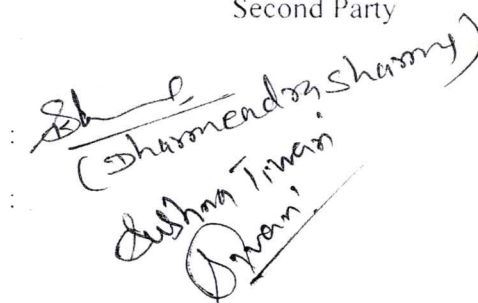 Second Party
:
(Dharmendra Sharma)
:
Sushma Tiwari
Tiwari